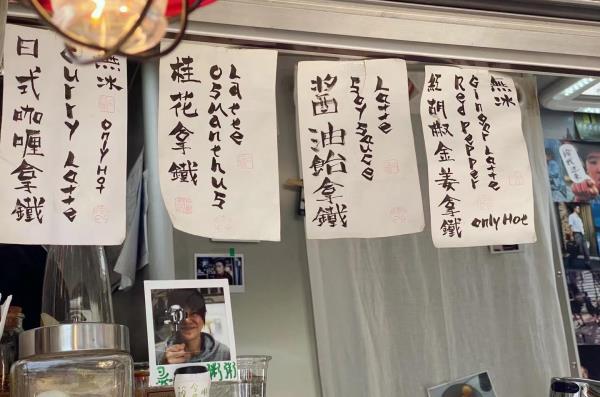 無冰 only Hot
Curry Latte
日式咖喱拿鐵
Latte
Osmanthus
桂花拿鐵
Latte
Soy sauce
醬油飴拿鐵
無冰
Ginger Latte
Red Pepper
紅胡椒金姜拿鐵
only Hot
粥粥